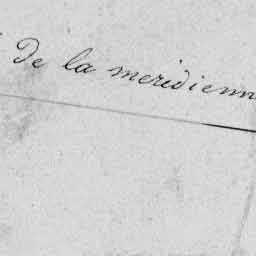 De la meridienn